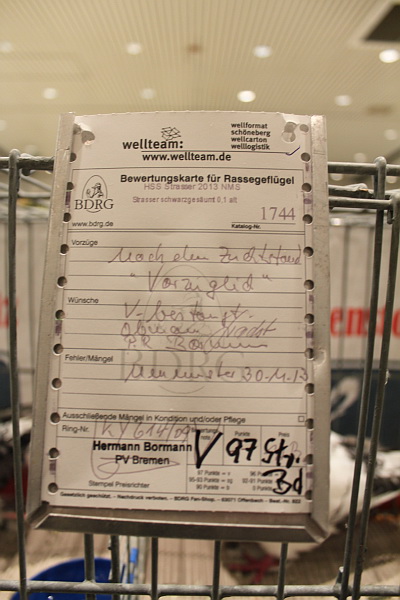 wellteam:
wellformat
schöneberg
wellcarton
welllogistik
www.wellteam.de
Bewertungskarte für Rassegeflügel
HSS Strasser 2013 NMS
Strasser schwarzgesäumt 0,1 alt
BDRG
www.bdrg.de
1744
Katalog-Nr.
Vorzüge
Nach dem Zuchtstand
"Vorzüglich"
Wünsche
V-bestätigt.
Obmann
P.R. Bormann
Fehler/Mängel
Neumünster 30.11.13
Ausschließende Mängel in Kondition und/oder Pflege
Ring-Nr.
Punkte
Preis
V 97 Stp.
Bd
Hermann Bormann
PV Bremen
97 Punkte = v
Stempel Preisrichter
Gesetzlich geschützt. – Nachdruck verboten. – BDRG Fan-Shop. – 63071 Offenbach – Best.-Nr.